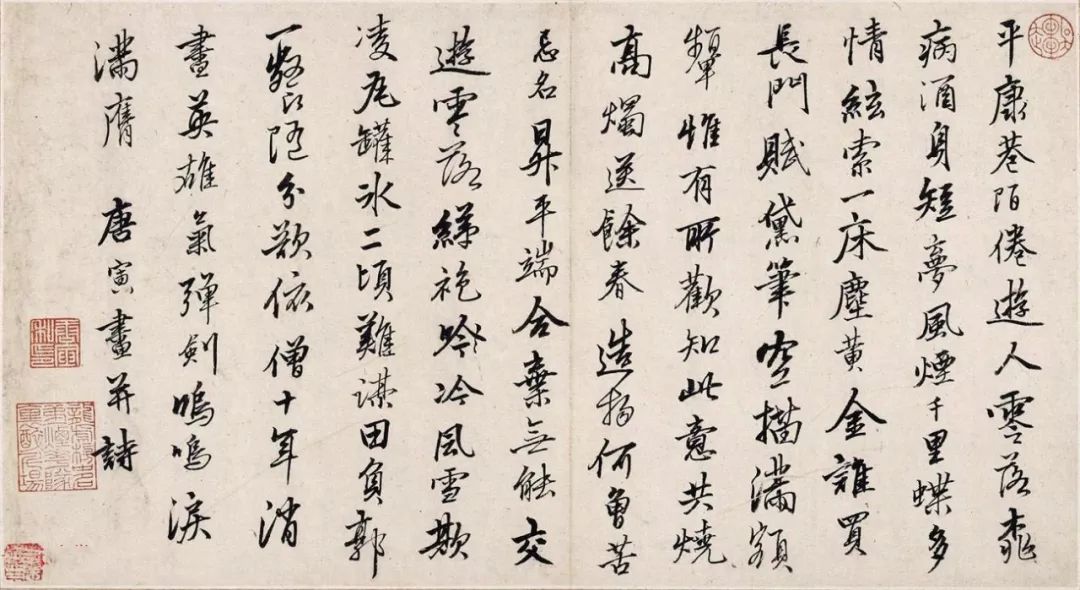 平康巷陌倦遊人零落桃
病酒身短夢風煙千里蝶多
情絃索一床塵黃金誰買
長門賦黛筆空描滿額
顰惟有所歡知此意共燒
高燭送餘春造物何曾苦
忌名昇平端合棄無能交
遊零落綈袍吟冷風雪欺
凌瓦罐冰二頃難謀田負郭
一餐隨分欲依僧十年消
盡英雄氣彈劍嗚嗚淚
滿膺 唐寅畫并詩